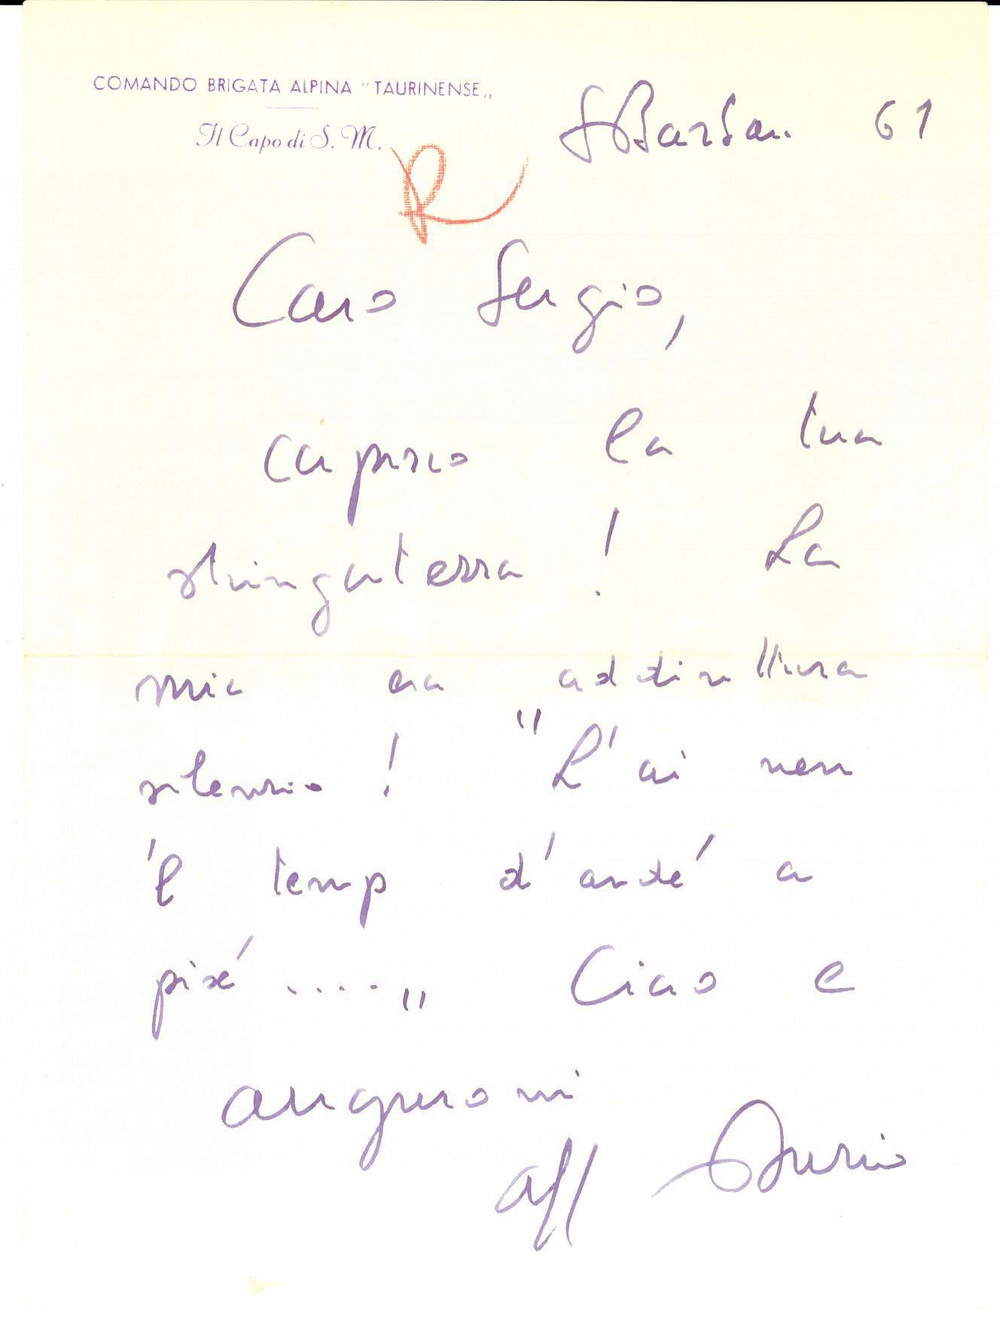 COMANDO BRIGATA ALPINA "TAURINENSE„
Il Capo di S. M.
S Barbara 61
R
Caro Sergio,
capisco la tua
stringatezza! La
mia era addirittura
silenzio! "L'ai nen
'l temp d'andé a
pisé ....„ Ciao e
auguroni
aff